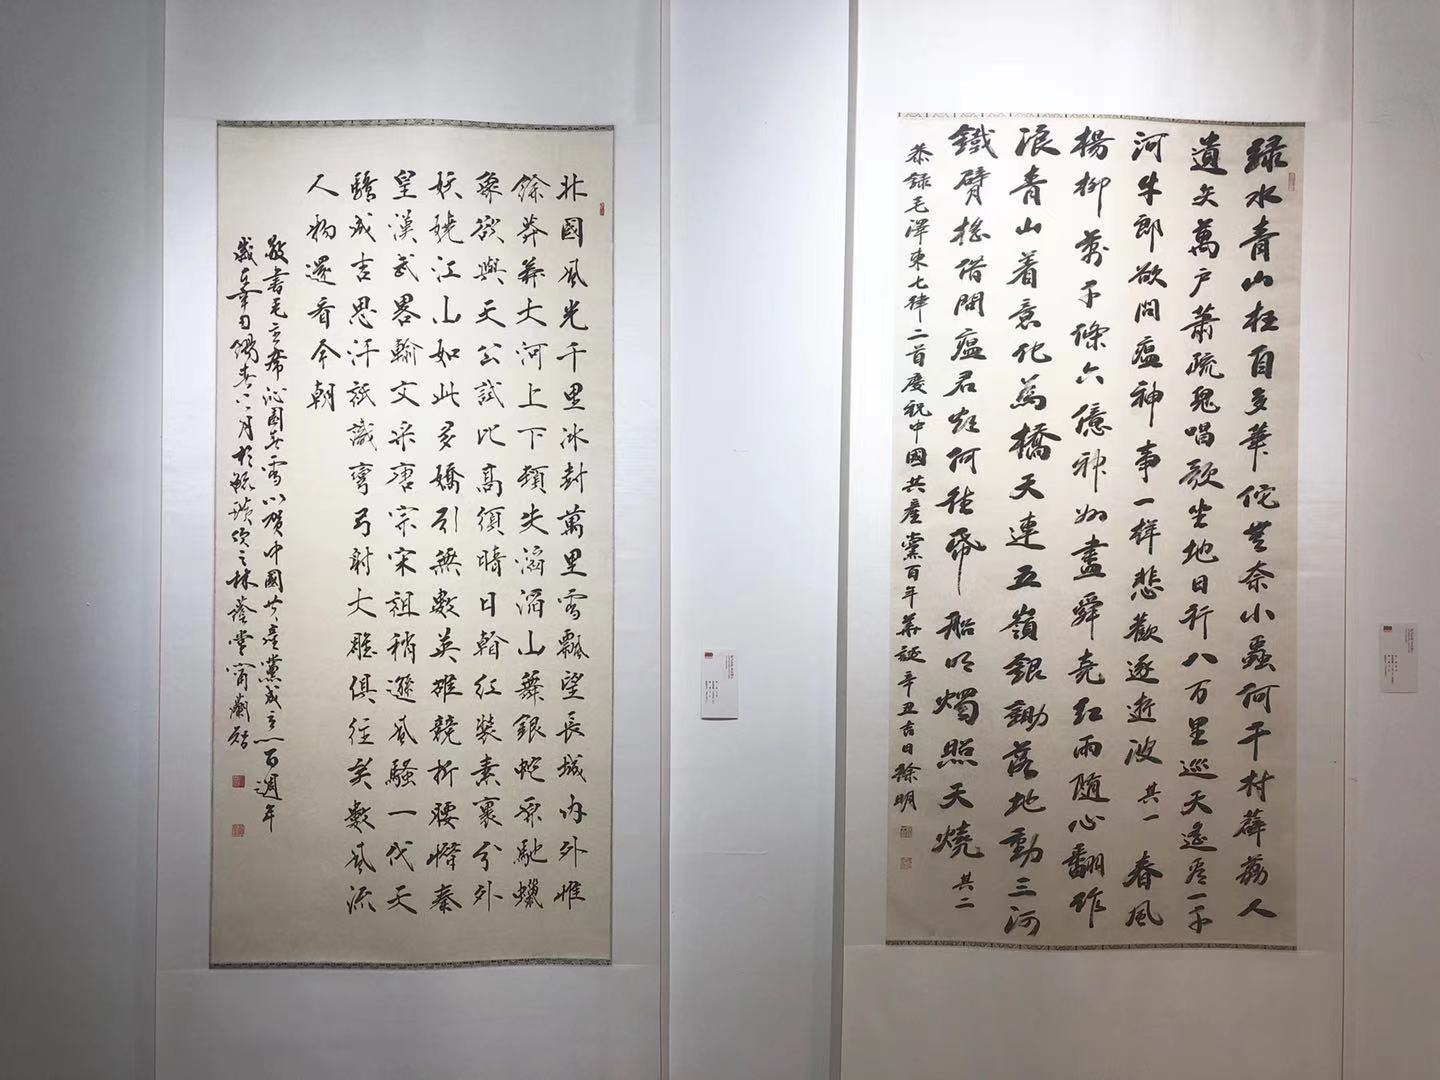 綠水青山枉自多華佗無奈小蟲何千村薜荔人
遺矢萬戶蕭疏鬼唱歌坐地日行八万里巡天遙看一千
河牛郎欲問瘟神事一樣悲歡逐逝波 其一 春風
楊柳萬千條六億神州盡舜堯紅雨随心翻作
浪青山着意化為橋天連五嶺銀鋤落地動三河
鐵臂搖借問瘟君欲何往紙船明燭照天燒 其二
恭錄毛澤東七律二首慶祝中國共產黨百年華誕辛丑吉日徐明
北國風光千里冰封萬里雪飄望長城內外惟
餘莽莽大河上下頓失滔滔山舞銀蛇原馳蠟
象欲與天公試比高須晴日看紅裝素裹分外
妖嬈江山如此多嬌引無數英雄競折腰惜秦
皇漢武畧輸文采唐宗宋祖稍遜風騷一代天
驕成吉思汗祇識彎弓射大雕俱往矣數風流
人物還看今朝
敬書毛主席沁園春雪以賀中國共產黨成立一百週年
歲在辛丑